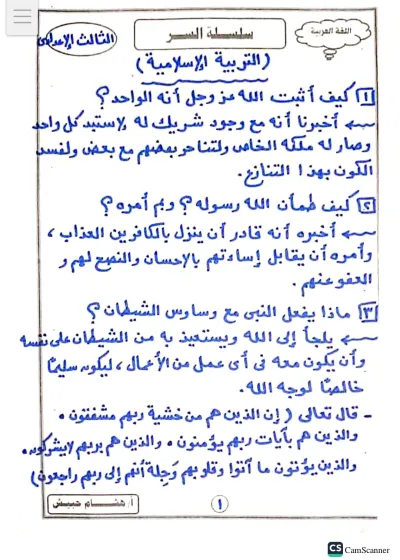 اللغة العربية
سلسلة السر
الثالث الإعدادى
(التربية الإسلامية)
١ كيف أثبت الله عز وجل أنه الواحد؟
← أخبرنا أنه مع وجود شريك له لاستبد كل واحد
وصار له ملكه الخاص ولتناحر بعضهم مع بعض ولفسد
الكون بهذا التنازع.
٢ كيف طمأن الله رسوله؟ وبم أمره؟
← أخبره أنه قادر أن ينزل بالكافرين العذاب،
وأمره أن يقابل إساءتهم بالإحسان والنصح لهم و
العفو عنهم.
٣ ماذا يفعل النبى مع وساوس الشيطان؟
← يلجأ إلى الله ويستعيذ به من الشيطان على نفسه
وأن يكون معه فى أى عمل من الأعمال، ليكون سليمًا
خالصًا لوجه الله.
- قال تعالى (إن الذين هم من خشية ربهم مشفقون.
والذين هم بآيات ربهم يؤمنون. والذين هم بربهم لا يشركون.
والذين يؤتون ما آتوا وقلوبهم وجلة أنهم إلى ربهم راجعون)
١
أ/ هشام حبيش
CS CamScanner